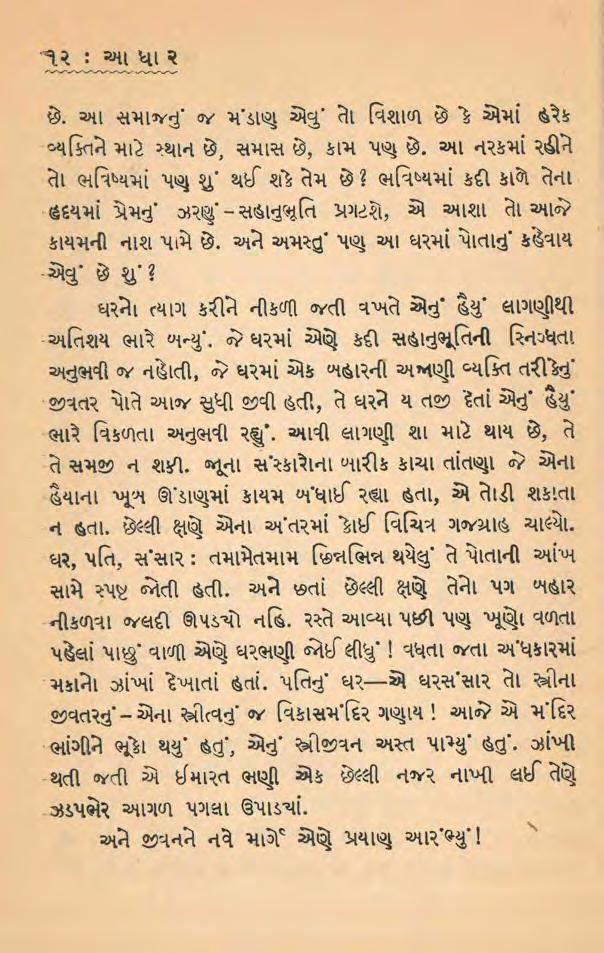 ૧૨ : આ ધા ર
છે. આ સમાજનું જ મંડાણ એવું તો વિશાળ છે કે એમાં હરેક
વ્યક્તિને માટે સ્થાન છે, સમાસ છે, કામ પણ છે. આ નરકમાં રહીને
તો ભવિષ્યમાં પણ શું થઈ શકે તેમ છે? ભવિષ્યમાં કદી કાળે તેના
હૃદયમાં પ્રેમનું ઝરણું – સહાનુભૂતિ પ્રગટશે, એ આશા તો આજે
કાયમની નાશ પામે છે. અને અમસ્તું પણ આ ઘરમાં પોતાનું કહેવાય
એવું છે શું?
ઘરનો ત્યાગ કરીને નીકળી જતી વખતે એનું હૈયું લાગણીથી
અતિશય ભારે બન્યું. જે ઘરમાં એણે કદી સહાનુભૂતિની સ્નિગ્ધતા
અનુભવી જ નહોતી, જે ઘરમાં એક બહારની અજાણી વ્યક્તિ તરીકેનું
જીવતર પોતે આજ સુધી જીવી હતી, તે ઘરને ય તજી દેતાં એનું હૈયું
ભારે વિકળતા અનુભવી રહ્યું. આવી લાગણી શા માટે થાય છે, તે
તે સમજી ન શકી. જૂના સંસ્કારોના બારીક કાચા તાંતણા જે એના
હૈયાના ખૂબ ઊંડાણમાં કાયમ બંધાઈ રહ્યા હતા, એ તોડી શકાતા
ન હતા. છેલ્લી ક્ષણે એના અંતરમાં કોઈ વિચિત્ર ગજગ્રાહ ચાલ્યો.
ઘર, પતિ, સંસાર : તમામેતમામ છિન્નભિન્ન થયેલું તે પોતાની આંખ
સામે સ્પષ્ટ જોતી હતી. અને છતાં છેલ્લી ક્ષણે તેનો પગ બહાર
નીકળવા જલદી ઊપડ્યો નહિ. રસ્તે આવ્યા પછી પણ ખૂણો વળતા
પહેલાં પાછું વાળી એણે ઘરભણી જોઈ લીધું ! વધતા જતા અંધકારમાં
મકાનો ઝાંખાં દેખાતાં હતાં. પતિનું ઘર—એ ઘરસંસાર તો સ્ત્રીના
જીવતરનું – એના સ્ત્રીત્વનું જ વિકાસમંદિર ગણાય ! આજે એ મંદિર
ભાંગીને ભૂકો થયું હતું, એનું સ્ત્રીજીવન અસ્ત પામ્યું હતું. ઝાંખી
થતી જતી એ ઈમારત ભણી એક છેલ્લી નજર નાખી લઈ તેણે
ઝડપભેર આગળ પગલા ઉપાડ્યાં.
અને જીવનને નવે માર્ગે એણે પ્રયાણ આરંભ્યું !